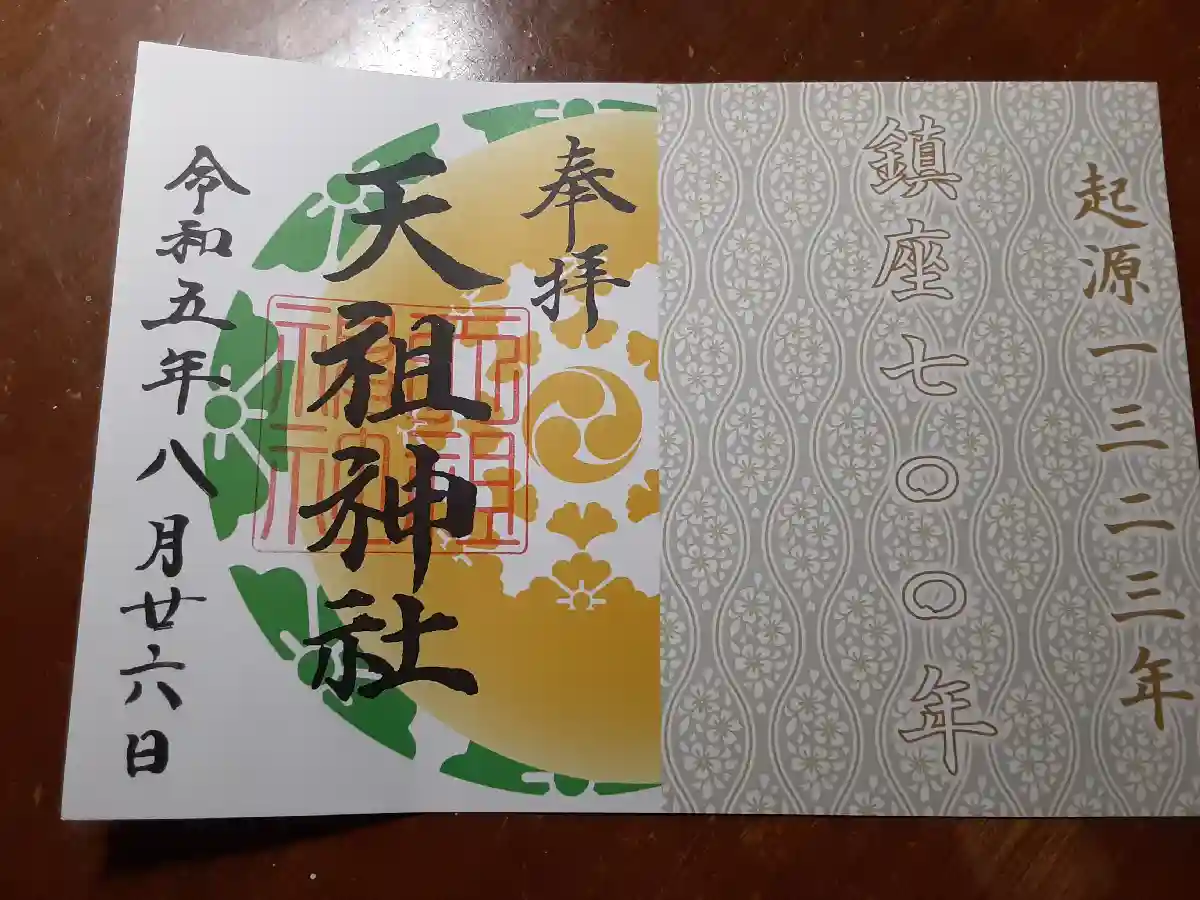 起源一三二三年
鎮座七〇〇年
奉拝
天祖神社
令和五年八月廿六日